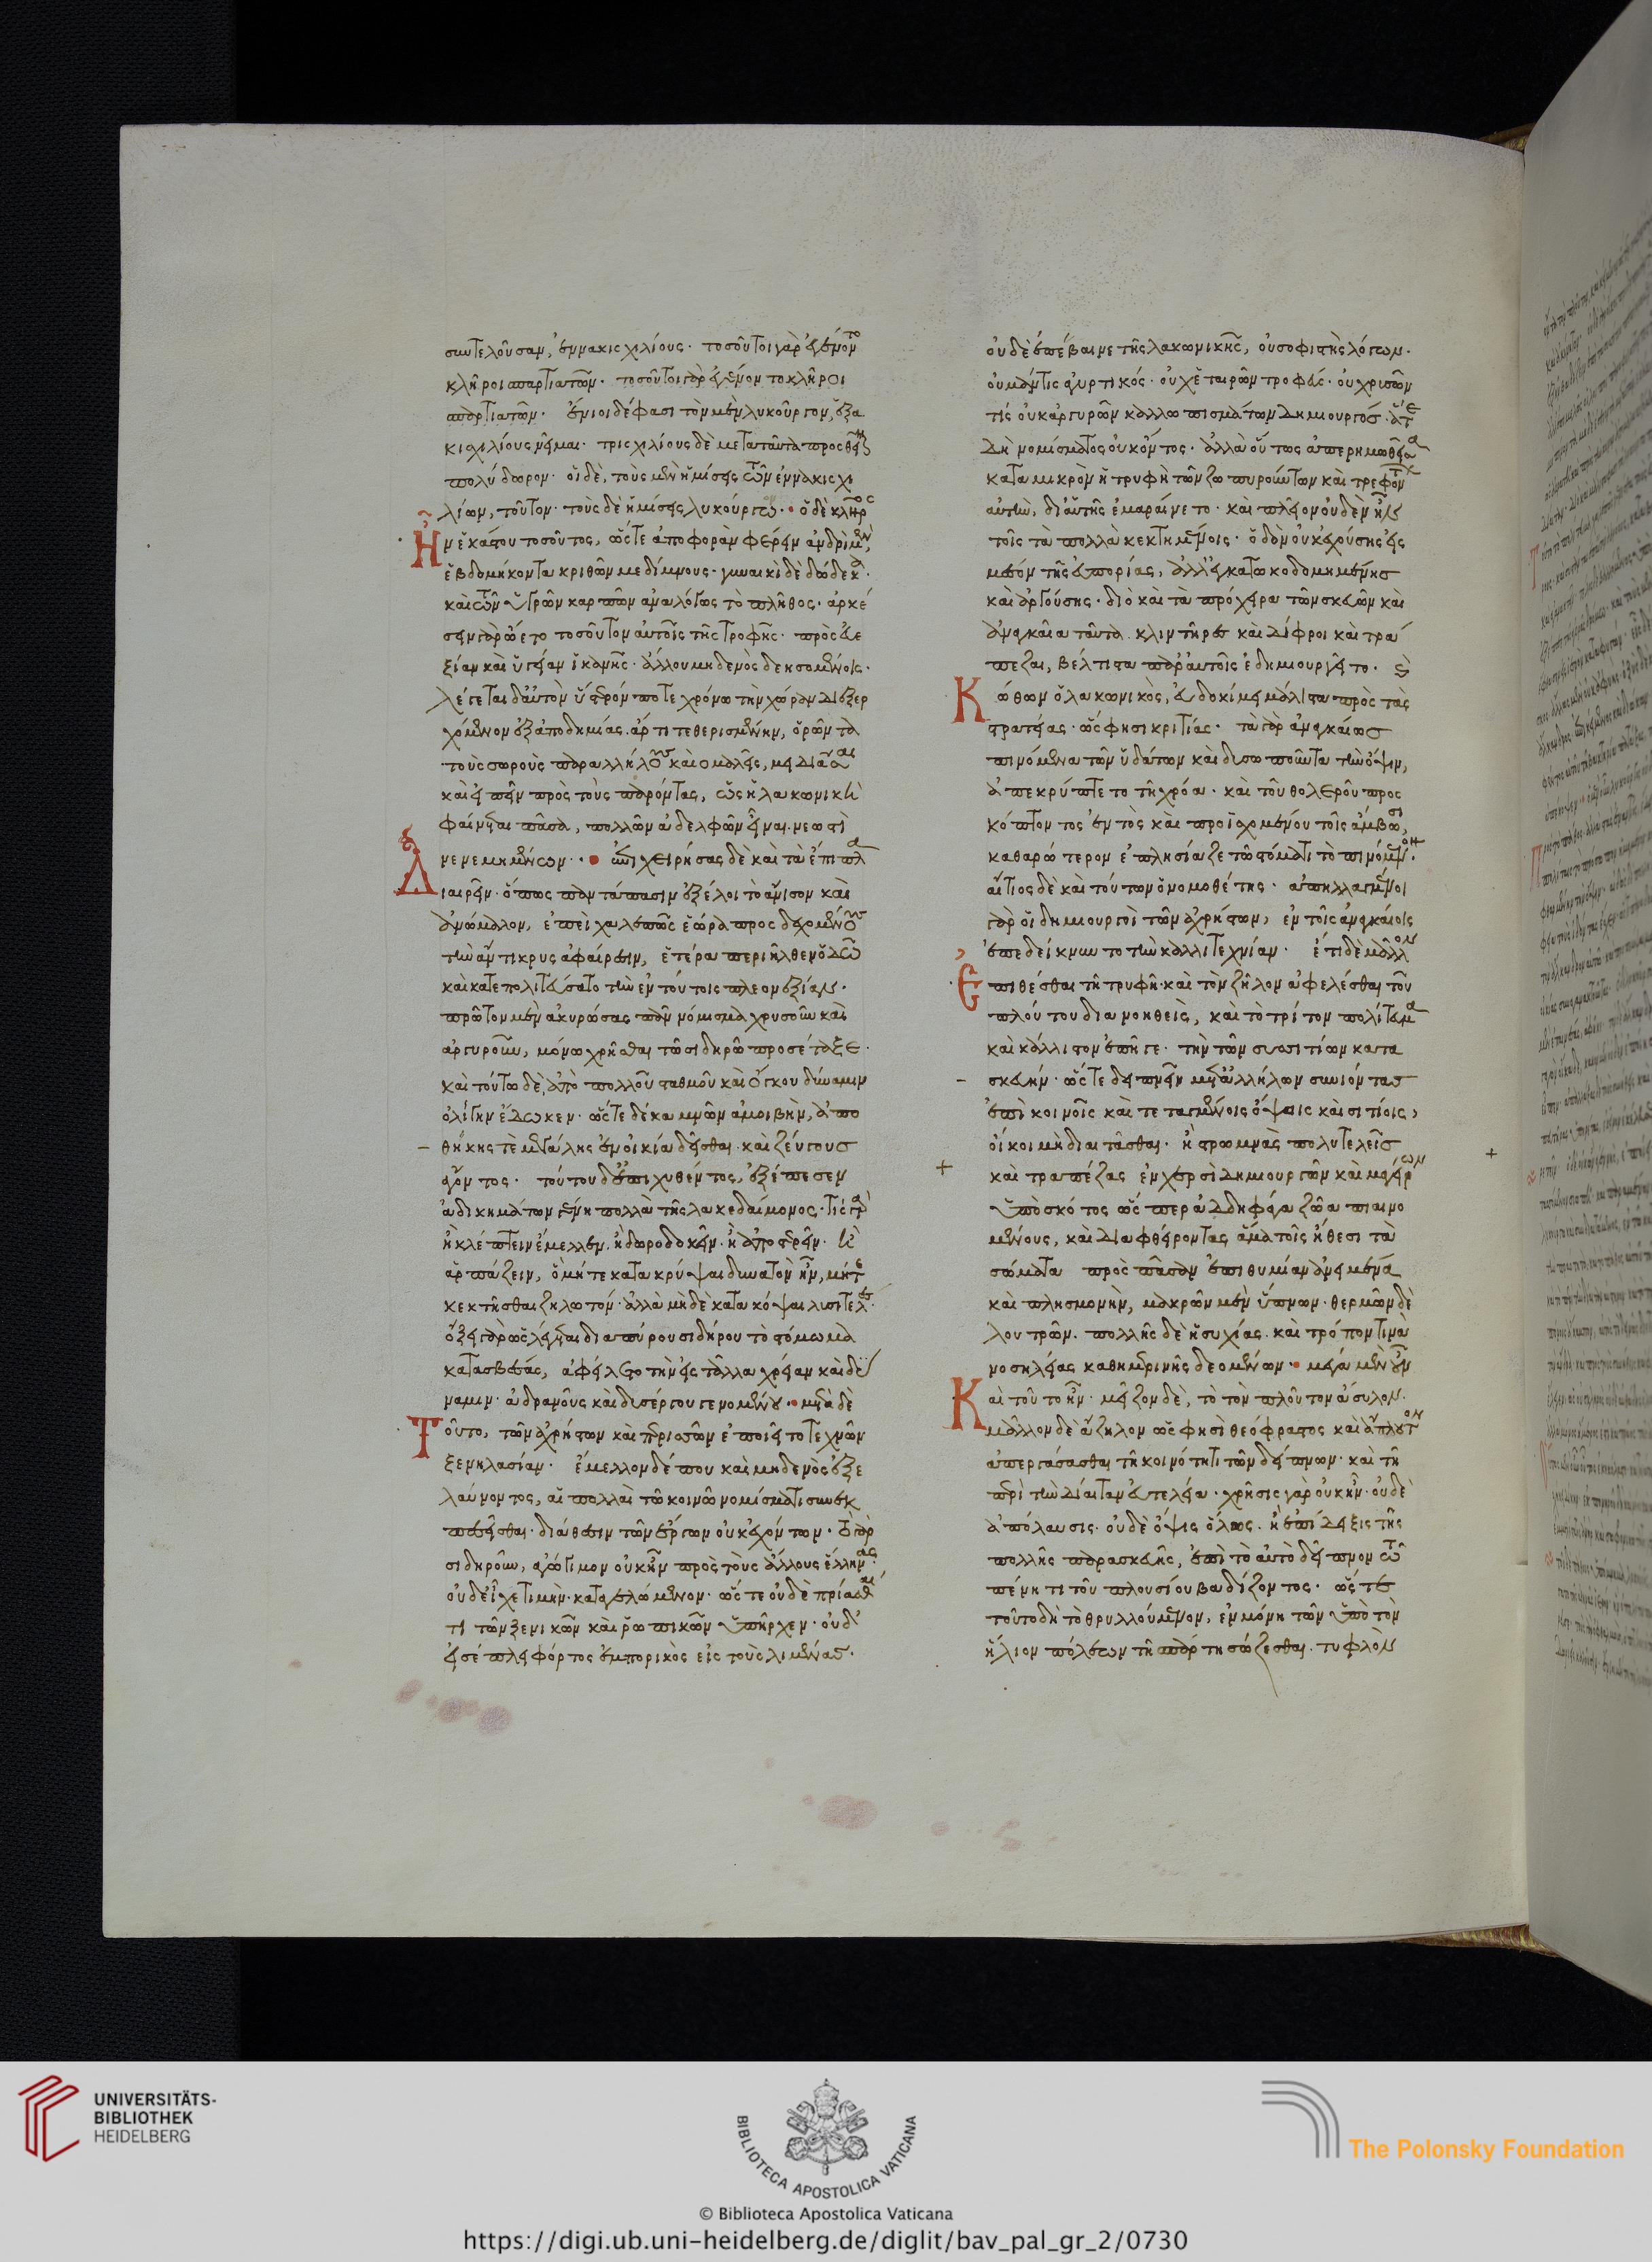 συντελοῦσαν, ἐννακισχιλίους· τοσοῦτοι γὰρ ἐγένοντο
κλῆροι σπαρτιατῶν· τοσοῦτοι γὰρ ἐγένοντο κλῆροι
σπαρτιατῶν· ἔνιοι δέ φασι τὸν μὲν λυκοῦργον, ἑξα
κισχιλίους νεῖμαι· τρισχιλίους δὲ μετὰ ταῦτα προσθεῖναι
πολύδωρον· οἱ δὲ, τοὺς μὲν ἡμίσεις τῶν ἐννακισχι
λίων, τοῦτον· τοὺς δὲ ἡμίσεις λυκούργω· ὁ δὲ κλῆρος
Ἦν ἑκάστου τοσοῦτος, ὥστε ἀποφορὰν φέρειν ἀνδρὶ μὲν,
ἑβδομήκοντα κριθῶν μεδίμνους· γυναικὶ δὲ δώδεκα·
καὶ τῶν ὑγρῶν καρπῶν ἀναλόγως τὸ πλῆθος· ἀρκέ
σειν γὰρ ὤετο τοσοῦτον αὐτοῖς τῆς τροφῆς· πρὸς εὐε
ξίαν καὶ ὑγείαν ἱκανῆς· ἄλλου μηδενὸς δεησομένοις·
λέγεται δ' αὐτὸν ὕστερόν ποτε χρόνω τὴν χώραν διεξερ
χόμενον ἐξ ἀποδημίας. ἄρτι τεθερισμένην, ὁρῶντα
τοὺς σωροὺς παραλλήλους καὶ ὁμαλεῖς, μειδιᾶσαι
καὶ εἰπεῖν πρὸς τοὺς παρόντας, ὡς ἡ λακωνικὴ
φαίνεται πᾶσα, πολλῶν ἀδελφῶν εἶναι. νεωστὶ
νενεμημένων·· ἐπιχειρήσας δὲ καὶ τὰ ἔπιπλα
Διαιρεῖν· ὅπως παντάπασιν ἐξέλοι τὸ ἄνισον καὶ
ἀνώμαλον, ἐπεὶ χαλεπῶς ἑώρα προσδεχομένους
τὴν ἄντικρυς ἀφαίρεσιν, ἑτέρα περιῆλθεν ὁδῶ
καὶ κατεπολιτεύσατο τὴν ἐν τούτοις πλεονεξίαν·
πρῶτον μὲν ἀκυρώσας πᾶν νόμισμα χρυσοῦν καὶ
ἀργυροῦν, μόνω χρῆσθαι τῶ σιδηρῶ προσέταξε·
καὶ τούτω δὲ, ἀπὸ πολλοῦ σταθμοῦ καὶ ὄγκου δύναμιν
ὀλίγην ἔδωκεν· ὥστε δέκα μνῶν ἀμοιβὴν, ἀπο
θήκης τὲ μεγάλης ἐν οἰκία δεῖσθαι· καὶ ζεύγους
ἄγοντος· τούτου δ' ἐπιχυθέντος, ἐξέπεσεν
ἀδικημάτων γένη πολλὰ τῆς λακεδαίμονος· τίς γὰρ
ἢ κλέπτειν ἔμελλεν. ἢ δωροδοκεῖν· ἢ ἀποστερεῖν· ἢ
ἁρπάζειν, ὃ μήτε κατακρύψαι δυνατὸν ἦν, μήτε
κεκτῆσθαι ζηλωτόν· ἀλλὰ μηδὲ κατακόψαι λυσιτελές·
ὄξει γὰρ ὡς λέγεται διαπύρου σιδήρου τὸ στόμωμα
κατασβέσας, ἀφείλετο τὴν εἰς τἄλλα χρείαν καὶ δύ
ναμιν· ἀδρανοῦς καὶ δυσέργου γενομένου·· μετὰ δὲ
Τοῦτο, τῶν ἀχρήστων καὶ περισσῶν ἐποιεῖτο τεχνῶν
ξενηλασίαν· ἔμελλον δέ που καὶ μηδενὸς ἐξε
λαύνοντος, αἱ πολλαὶ τῶ κοινῶ νομίσματι συνεκ
πεσεῖσθαι· διάθεσιν τῶν ἔργων οὐκ ἐχόντων· τὸ γὰρ
σιδηροῦν, ἀγώγιμον οὐκ ἦν πρὸς τοὺς ἄλλους ἕλληνας·
οὐδ' εἶχε τιμὴν· καταγελώμενον· ὥστε οὐδὲ πρίασθαί
τι τῶν ξενικῶν καὶ ῥωπικῶν ὑπῆρχεν· οὐδ'
εἰσέπλει φόρτος ἐμπορικὸς εἰς τοὺς λιμένας·
οὐδὲ ἐπέβαινε τῆς λακωνικῆς, οὐ σοφιστὴς λόγων·
οὐ μάντις ἀγυρτικός· οὐχ ἑταιρῶν τροφεύς· οὐ χρυσῶν
τίς οὐκ ἀργυρῶν καλλωπισμάτων δημιουργός· ἅτε
δὴ νομίσματος οὐκ ὄντος· ἀλλὰ οὕτως ἀπερημωθεῖσα
κατὰ μικρὸν ἡ τρυφὴ τῶν ζωπυρούντων καὶ τρεφόντων
αὐτὴν, δι' αὑτῆς ἐμαραίνετο· καὶ πλέον οὐδὲν ἦν
τοῖς τὰ πολλὰ κεκτημένοις· ὁδὸν οὐκ ἐχούσης εἰς
μέσον τῆς εὐπορίας, ἀλλ' ἐγκατωκοδομημένης
καὶ ἀργούσης· διὸ καὶ τὰ πρόχειρα τῶν σκευῶν καὶ
ἀναγκαῖα ταῦτα. κλιντῆρες καὶ δίφροι καὶ τρά
πεζαι, βέλτιστα παρ' αὐτοῖς ἐδημιουργεῖτο·
Κώθων ὁ λακωνικὸς, εὐδοκίμει μάλιστα πρὸς τὰς
στρατείας· ὥς φησι κριτίας· τὰ γὰρ ἀναγκαίως
πινόμενα τῶν ὑδάτων καὶ δυσωποῦντα τὴν ὄψιν,
ἀπεκρύπτετο τῆ χρόα· καὶ τοῦ θολεροῦ προσ
κόπτοντος ἐντὸς καὶ προϊσχομένου τοῖς ἄμβωσι,
καθαρώτερον ἐπλησίαζε τῶ στόματι τὸ πινόμενον·
αἴτιος δὲ καὶ τούτων ὁ νομοθέτης· ἀπηλλαγμένοι
γὰρ οἱ δημιουργοὶ τῶν ἀχρήστων, ἐν τοῖς ἀναγκαίοις
ἐπεδείκνυντο τὴν καλλιτεχνίαν· ἔτι δὲ μᾶλλον
Ἐπιθέσθαι τῆ τρυφῆ· καὶ τὸν ζῆλον ἀφελέσθαι τοῦ
πλούτου διανοηθεὶς, καὶ τὸ τρίτον πολίτευμα
καὶ κάλλιστον ἐπῆγε· τὴν τῶν συσσιτίων κατα
σκευήν· ὥστε δειπνεῖν μετ' ἀλλήλων συνιόντας
ἐπὶ κοινοῖς καὶ τεταγμένοις ὄψοις καὶ σιτίοις,
οἴκοι μὴ διαιτᾶσθαι· ἢ στρωμνὰς πολυτελεῖς
καὶ τραπέζας ἐν χερσὶ δημιουργῶν καὶ μαγείρων
ὑπὸ σκότος ὥσπερ ἀδδηφάγα ζῶα πιαινο
μένους, καὶ διαφθείροντας ἅμα τοῖς ἤθεσι τὰ
σώματα πρὸς πᾶσαν ἐπιθυμίαν ἀνειμένα
καὶ πλησμονὴν, μακρῶν μὲν ὕπνων· θερμῶν δὲ
λουτρῶν. πολλῆς δὲ ἡσυχίας. καὶ τρόπον τινὰ
νοσηλείας καθημερινῆς δεομένων· μέγα μὲν οὖν
Καὶ τοῦτο ἦν· μεῖζον δὲ, τὸ τὸν πλοῦτον ἄσυλον·
μᾶλλον δὲ ἄζηλον ὥς φησὶ θεόφραστος καὶ ἄπλουτον
ἀπεργάσασθαι τῆ κοινότητι τῶν δείπνων· καὶ τῆ
περὶ τὴν δίαιταν εὐτελεία· χρῆσις γὰρ οὐκ ἦν· οὐδὲ
ἀπόλαυσις. οὐδὲ ὄψις ὅλως. ἢ ἐπίδειξις τῆς
πολλῆς παρασκευῆς, ἐπὶ τὸ αὐτὸ δεῖπνον τῶ
πένητι τοῦ πλουσίου βαδίζοντος· ὥστε
τοῦτο δὴ τὸ θρυλλούμενον, ἐν μόνη τῶν ὑπὸ τὸν
ἥλιον πόλεων τῆ σπάρτη σώζεσθαι. τυφλὸν
UNIVERSITÄTS-
BIBLIOTHEK
HEIDELBERG
BIBLIOTECA APOSTOLICA VATICANA
The Polonsky Foundation
© Biblioteca Apostolica Vaticana
https://digi.ub.uni-heidelberg.de/diglit/bav_pal_gr_2/0730